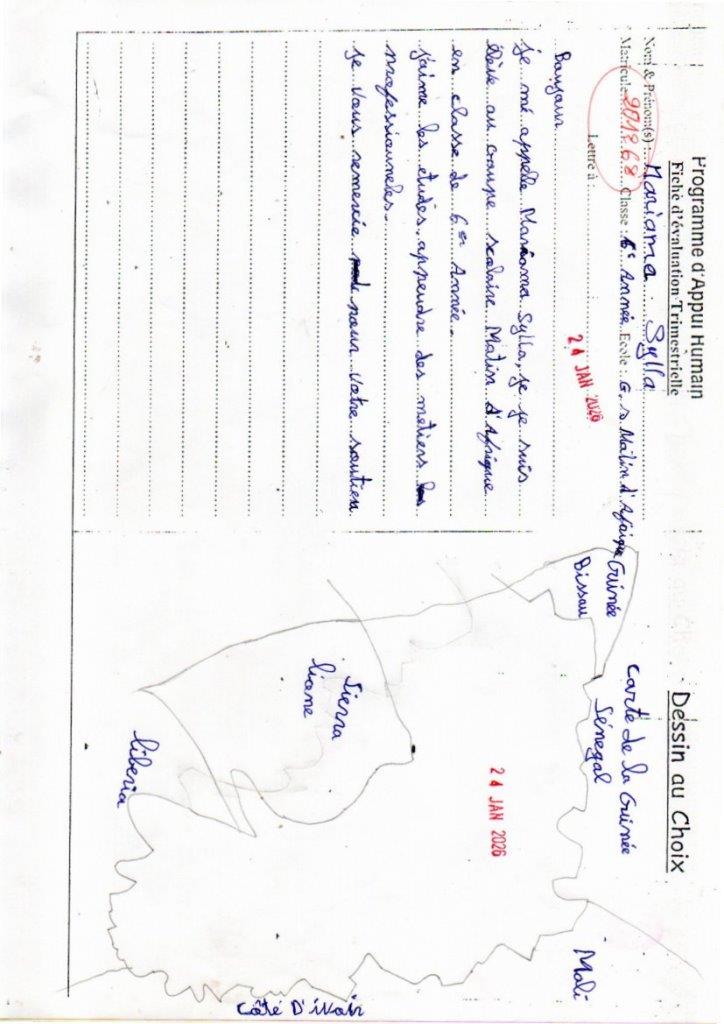 Programme d'Appui Humain
Fiche d'évaluation Trimestrielle
Nom & Prénom(s) : Mariama Sylla
Matricule 201868 Classe : 6e Année Ecole : G. s Matin d'Afrique
Lettre à :
24 JAN 2026
Bonjour
je me appelle Mariama Sylla, je je suis
élève au groupe scolaire Matin d'Afrique
en classe de 6em Année.
j'aime les études. apprendre des metiers
professionneles.
je vous remercie pour votre soutien
Dessin au Choix
Carte de la Guinée
Guinée
Bissau
Sénégal
Mali
24 JAN 2026
Sierra
liene
liberia
Côté D'ivoir